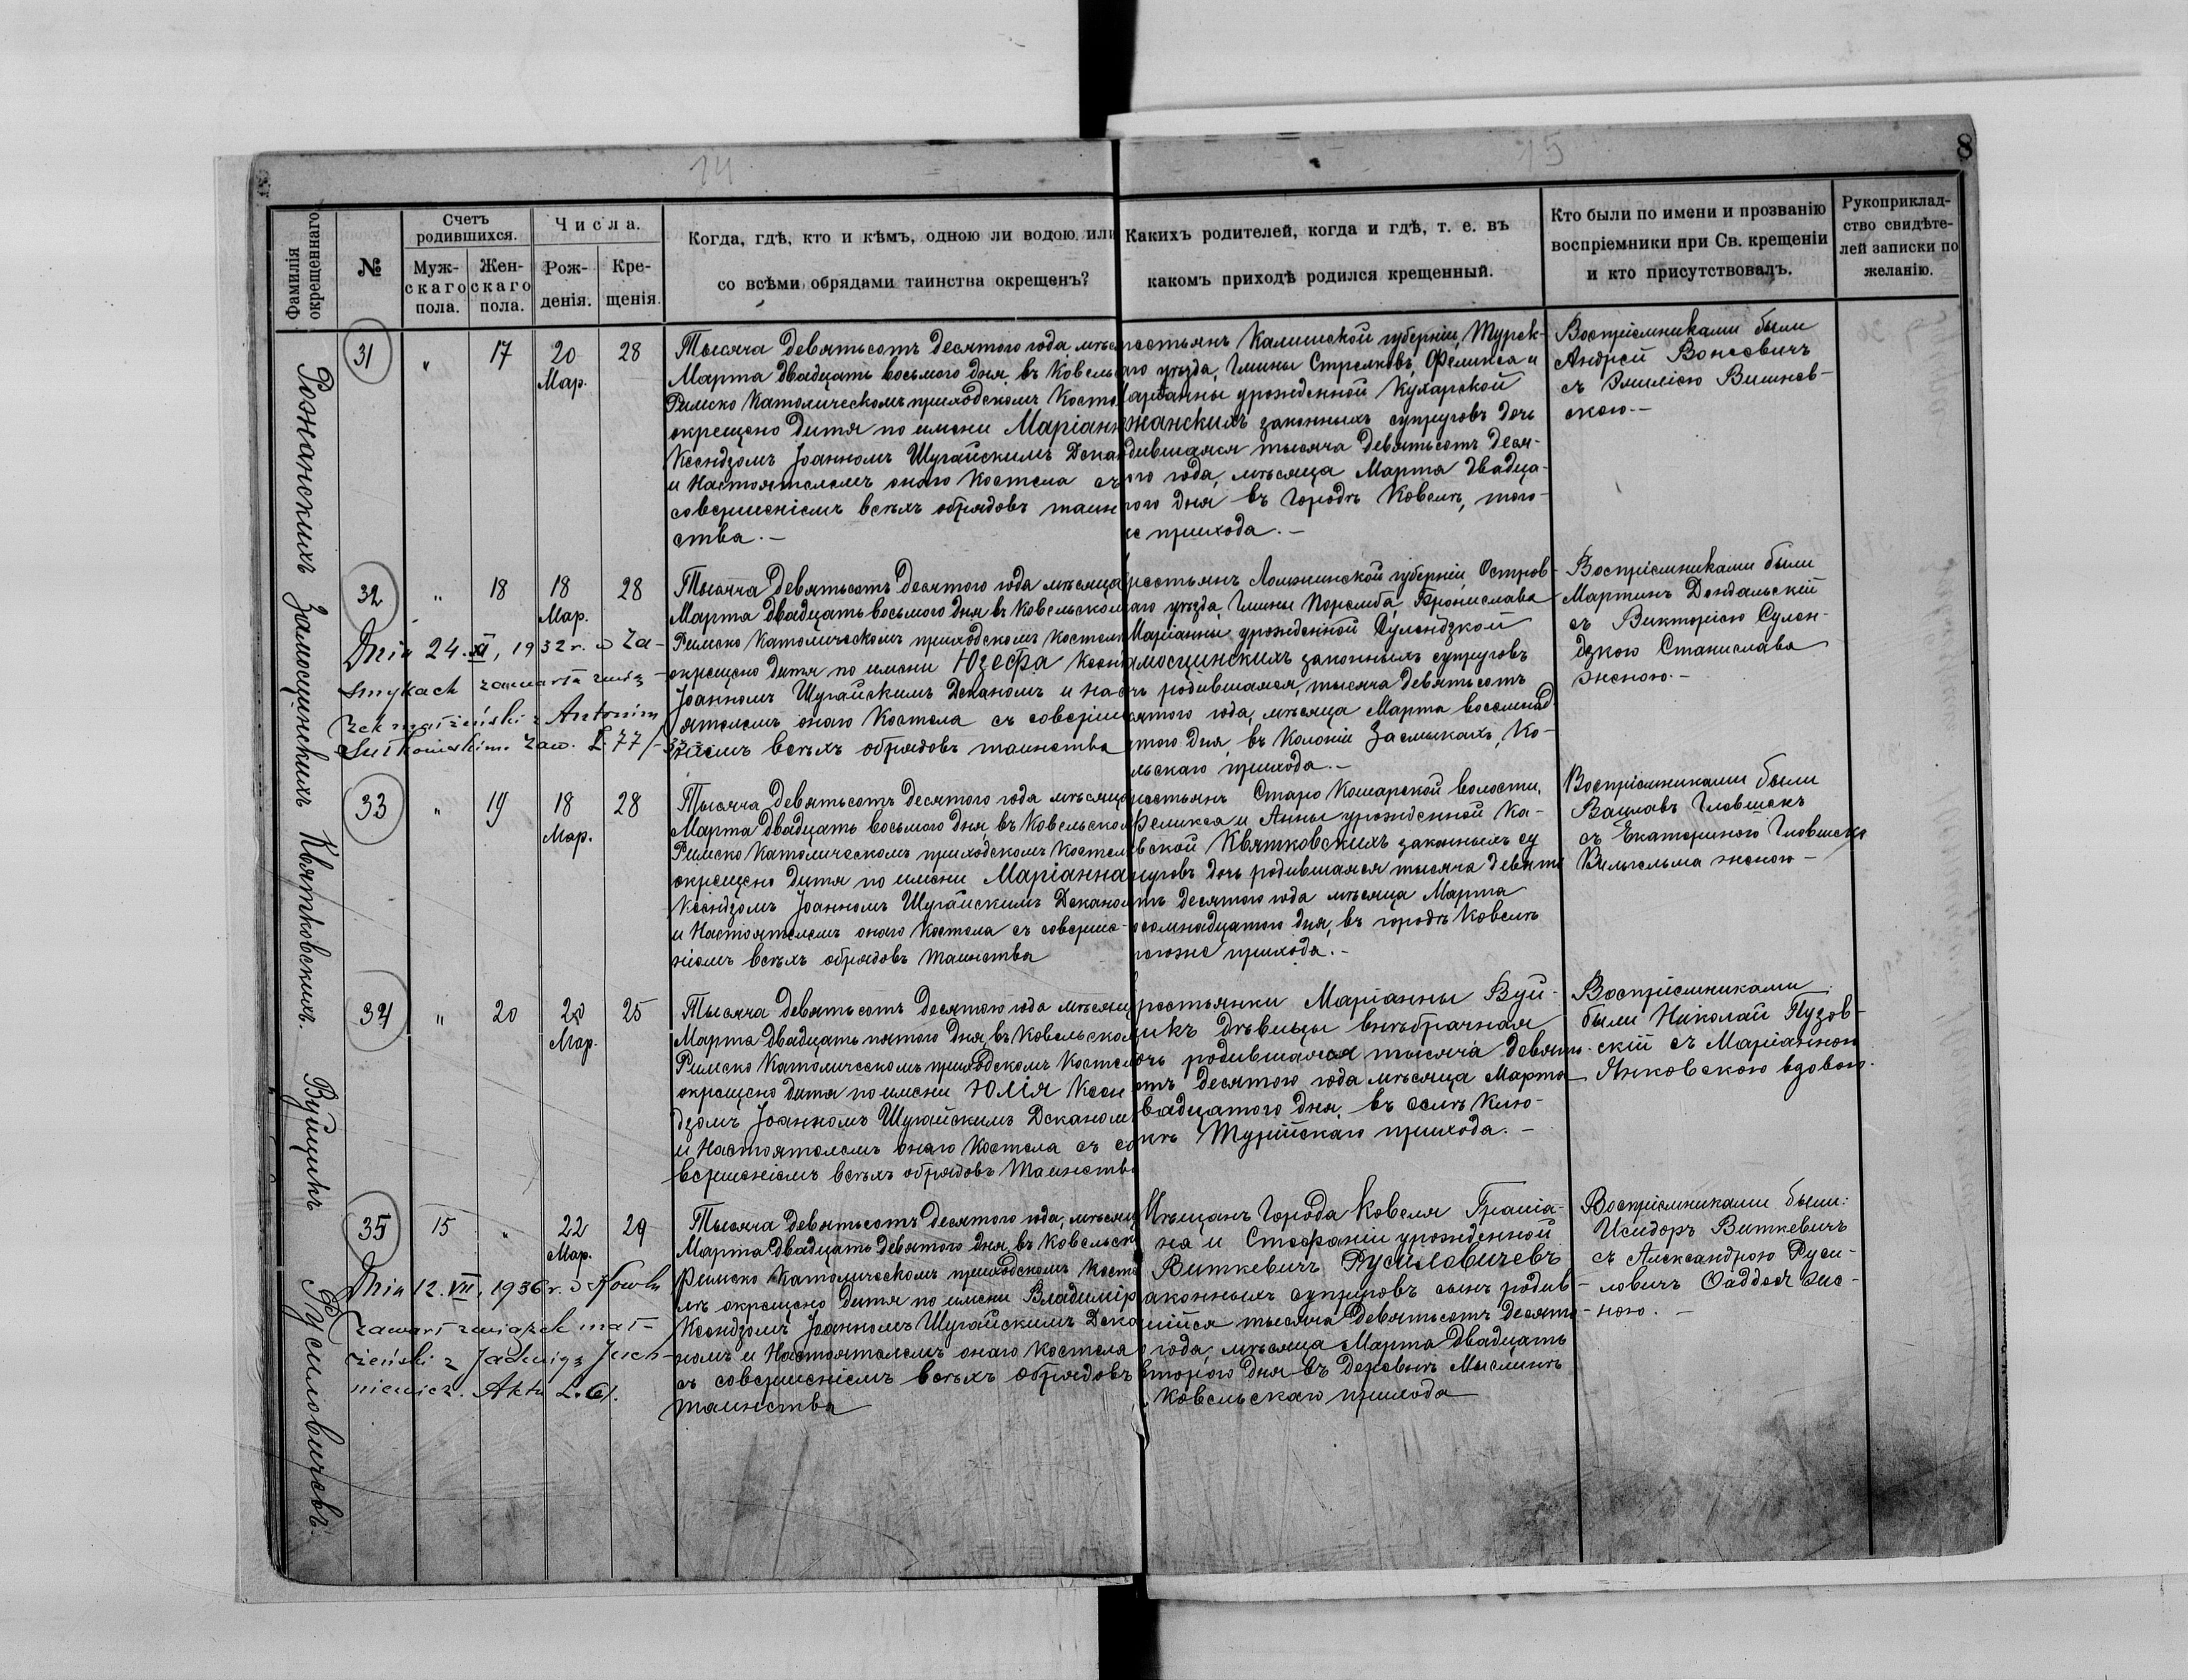 14
15
8
Фамилія окрещеннаго
№
Счетъ родившихся.
Муж-скаго пола.
Жен-скаго пола.
Числа.
Рож-денія.
Кре-щенія.
Когда, гдѣ, кто и кѣмъ, одною ли водою или
со всѣми обрядами таинства окрещенъ?
Какихъ родителей, когда и гдѣ, т. е. въ
какомъ приходѣ родился крещенный.
Кто были по имени и прозванію
воспріемники при Св. крещеніи
и кто присутствовалъ.
Рукоприклад-
ство свидѣте-
лей записки по
желанію.
Рожанскихъ
31 " 17 20 Мар. 28
Тысяча девятьсотъ десятого года, мѣся
Марта двадцать восьмого дня, въ Ковель
Римско Католическомъ приходскомъ Косте
окрещено дитя по имени Маріанн
Ксендзомъ Іоанномъ Шугайскимъ Декан
и Настоятелемъ онаго Костела съ
совершеніемъ всѣхъ обрядовъ таин
ства.—
рестьянъ Калишской губерніи, Турек-
аго уѣзда, Гмины Стрелковъ, Феликса и
аріанны урожденной Кухарской
жанскихъ законныхъ супруговъ дочь
дившаяся тысяча девятьсотъ деся-
ого года, мѣсяца Марта двадца-
того дня въ городѣ Ковелѣ, того-
же прихода.—
Воспріемниками были
Андрей Вонсовичъ
съ Эмиліею Вишнев-
скою.—
Замосцинскихъ
32 " 18 18 Мар. 28
Dnia 24.XI, 1932 r. w Za-
smykach zawarła zwią-
zek małżeński z Antonim
Sutkowskim. Zaw. L. 77/
Тысяча девятьсотъ десятого года мѣсяца
Марта двадцать восьмого дня въ Ковельском
Римско Католическомъ приходскомъ Костел
окрещено дитя по имени Юзефа Ксен
Іоанномъ Шугайскимъ Деканомъ и Нас
ятелемъ онаго Костела съ соверше
ніемъ всѣхъ обрядовъ таинства
рестьянъ Ломжинской губерніи, Остров-
аго уѣзда, Гмины Поремба, Бронислава
Маріанны урожденной Сулендзкой
амосцинскихъ законныхъ супруговъ
чь родившаяся, тысяча девятьсотъ
сятого года, мѣсяца Марта восемнад-
атого дня, въ Колоніи Засмыкахъ, Ко-
льскаго прихода.—
Воспріемниками были
Мартинъ Дондальскій
съ Викторіею Сулен-
дзкою Станислава
женою.—
Квятковскихъ.
33 " 19 18 Мар. 28
Тысяча девятьсотъ десятого года мѣсяца
Марта двадцать восьмого дня, въ Ковельском
Римско Католическомъ приходскомъ Костел
окрещено дитя по имени Маріанна
Ксендзомъ Іоанномъ Шугайскимъ Деканом
и Настоятелемъ онаго Костела съ соверше-
ніемъ всѣхъ обрядовъ таинства
рестьянъ Старо Кошарской волости,
Феликса и Анны урожденной Ка-
вской Квятковскихъ законныхъ су
пруговъ дочь родившаяся тысяча девять
тъ десятого года мѣсяца Марта
осемнадцатого дня, въ городѣ Ковелѣ
тогоже прихода.—
Воспріемниками были
Вацлавъ Гловшекъ
съ Екатериною Гловшекъ
Вильгельма женою—
Вуйцикъ
34 " 20 20 Мар. 25
Тысяча девятьсотъ десятого года мѣсяц
Марта двадцать пятого дня, въ Ковельском
Римско Католическомъ приходскомъ Костел
окрещено дитя по имени Юлія Ксен
дзомъ Іоанномъ Шугайскимъ Деканом
и Настоятелемъ онаго Костела съ со
вершеніемъ всѣхъ обрядовъ Таинств
рестьянки Маріанны Вуй-
цикъ дѣвицы внѣбрачная
очь родившаяся тысяча девять-
отъ десятого года мѣсяца Марта
вадцатого дня, въ селѣ Клю-
скѣ Турійскаго прихода.—
Воспріемниками
были Николай Пузов-
скій съ Маріанною
Янковскою вдовою.
Русиловичевъ.
35 15 " 22 Мар. 29
Dnia 12.VII, 1936 r. w Kowlu
zawarł związek mał-
żeński z Jadwigą Juch-
niewicz. Akta L. 61.
Тысяча девятьсотъ десятого года, мѣсяц
Марта двадцать девятого дня, въ Ковельск
Римско Католическомъ приходскомъ Косте
лѣ окрещено дитя по имени Владимір
Ксендзомъ Іоанномъ Шугайскимъ Дека
номъ и Настоятелемъ онаго Костела
съ совершеніемъ всѣхъ обрядовъ
таинства
Мѣщанъ Города Ковеля Граціа-
на и Стефаніи урожденной
Виткевичъ Русиловичевъ
аконныхъ супруговъ сынъ родив-
шійся тысяча девятьсотъ десято-
о года, мѣсяца Марта двадцать
второго дня въ деревнѣ Мыслинѣ
Ковельскаго прихода
Воспріемниками были:
Исидоръ Виткевичъ
съ Александрою Руси-
ловичъ Фаддея же-
ною.—